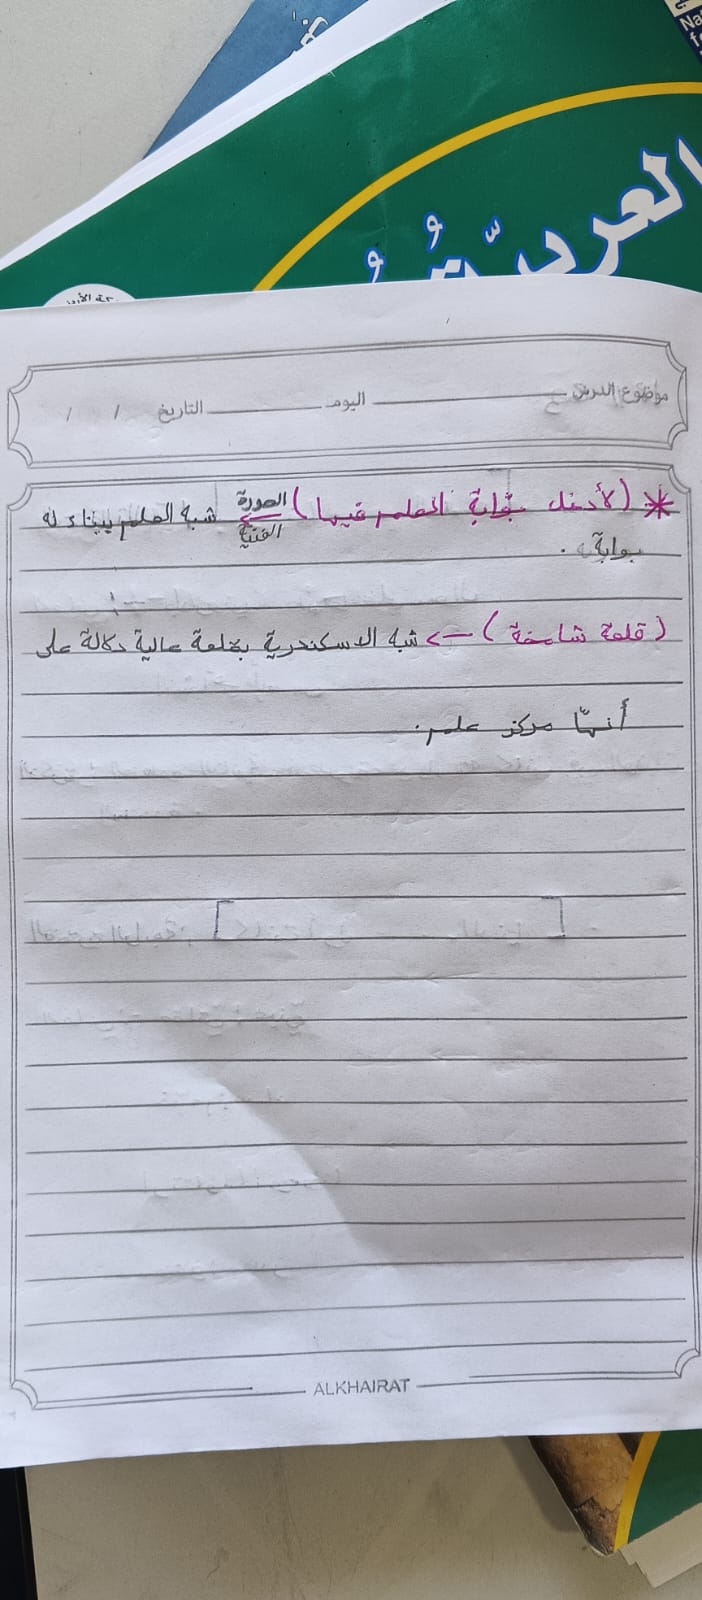 العربية
موضوع الدرس اليوم التاريخ / /
* (لأدخل بوّابة العلم فيها) الصورة الفنية شبه العلم ببناء له
بوابة .
(قلعة شامخة) -> شبه الاسكندرية بقلعة عالية دلالة على
أنّها مركز علم.
ALKHAIRAT